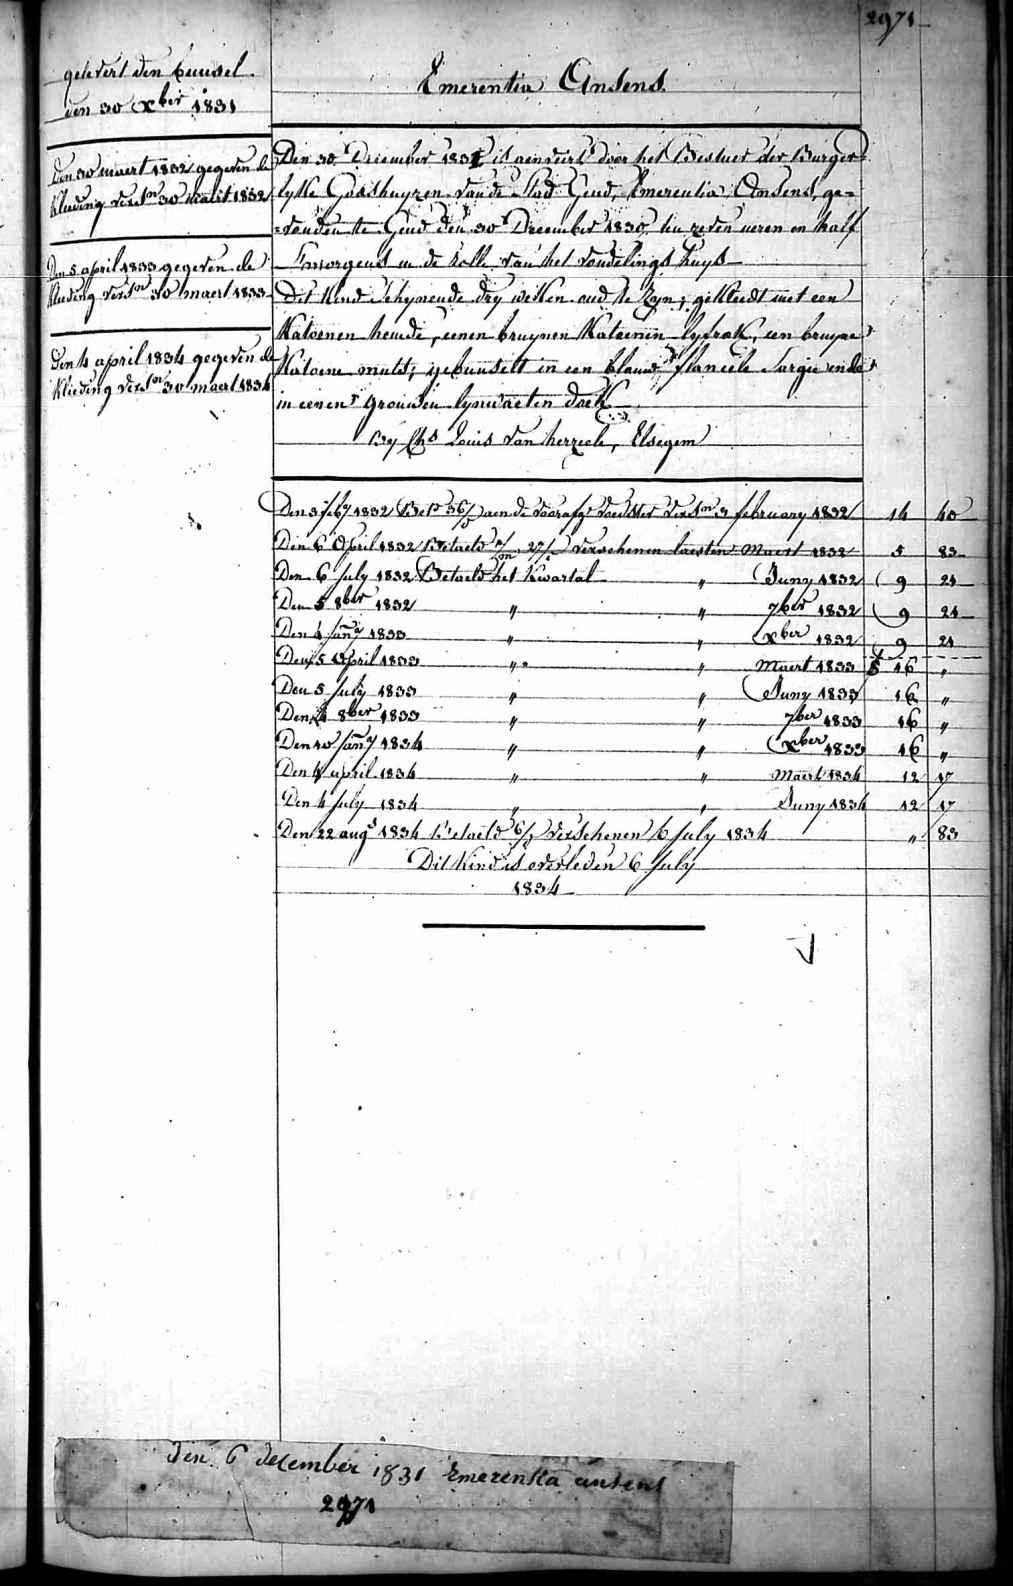 2971
gelevert den bunsel
den 30 Xber 1831
Den 30 maert 1832 gegeven de
kleeding versn 30 maert 1832
Den 5 april 1833 gegeven de
kleeding versn 30 maert 1833
Den 4 april 1834 gegeven de
kleeding versn 30 maert 1834
Emerentia Ansens.
Den 30 December 1831 is aenveert door het Bestuer der Burger=
lyke Godshuyzen van de Stad Gend, Emerentia Ansens, ge=
=vonden te Gend den 30 December 1830 ten zeven ueren en half
'smorgens in de rolle van het vondelings huys
Dit kind schynende dry weken oud te zyn; gekleedt met een
katoenen hemde, eenen bruynen katoenen lyfrok, een bruyne
katoene muts; gebunselt in een blauw flaneele sargie ende
in eenen grouwen lynwaeten doek
By Chs Louis van herzeele, Elsegem
Den 3 feby 1832 Bet 36/ aen de voorafg voedster versn 3 february 1832 14 40
Den 6 April 1832 Betaeld 27/ verschenen laesten Maert 1832 5 83
Den 6 July 1832 Betaeld het kwartal " Juny 1832 9 21
Den 5 8ber 1832 " " 7ber 1832 9 21
Den 4 Jany 1833 " " Xber 1832 9 21
Den 5 April 1833 " " Maert 1833 16 "
Den 5 July 1833 " " Juny 1833 16 "
Den 4 8ber 1833 " " 7ber 1833 16 "
Den 10 Jany 1834 " " Xber 1833 16 "
Den 4 april 1834 " " Maert 1834 12 17
Den 4 July 1834 " " Juny 1834 12 17
Den 22 augs 1834 betaeld 6/ verschenen 6 July 1834 " 83
Dit kind is overleden 6 July
1834
den 6 december 1831 Emerenska ansens
2971